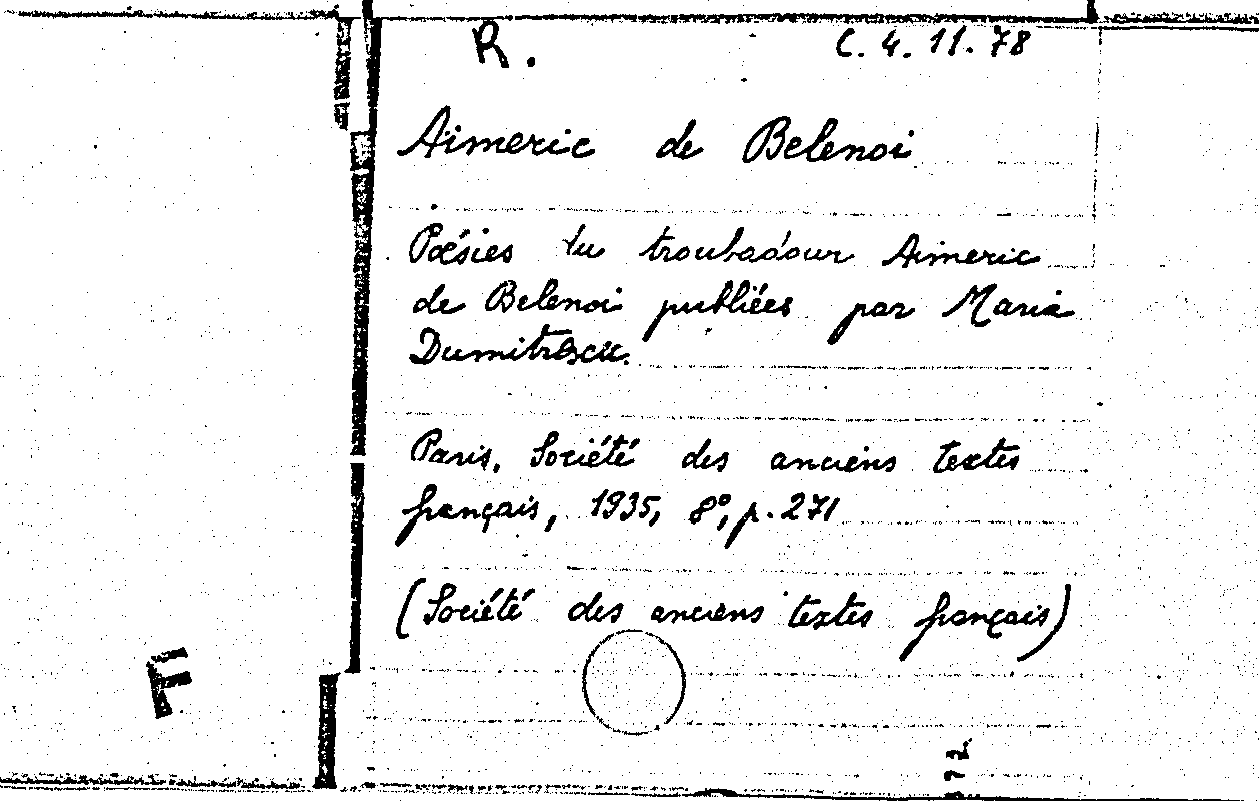 R. C. 4. 11. 78
Aimeric de Belenoi
Poésies du troubadour Aimeric
de Belenoi publiées par Maria
Dumitrescu.
Paris, Société des anciens textes
français, 1935, 8°, p. 271
(Société des anciens textes français)
F